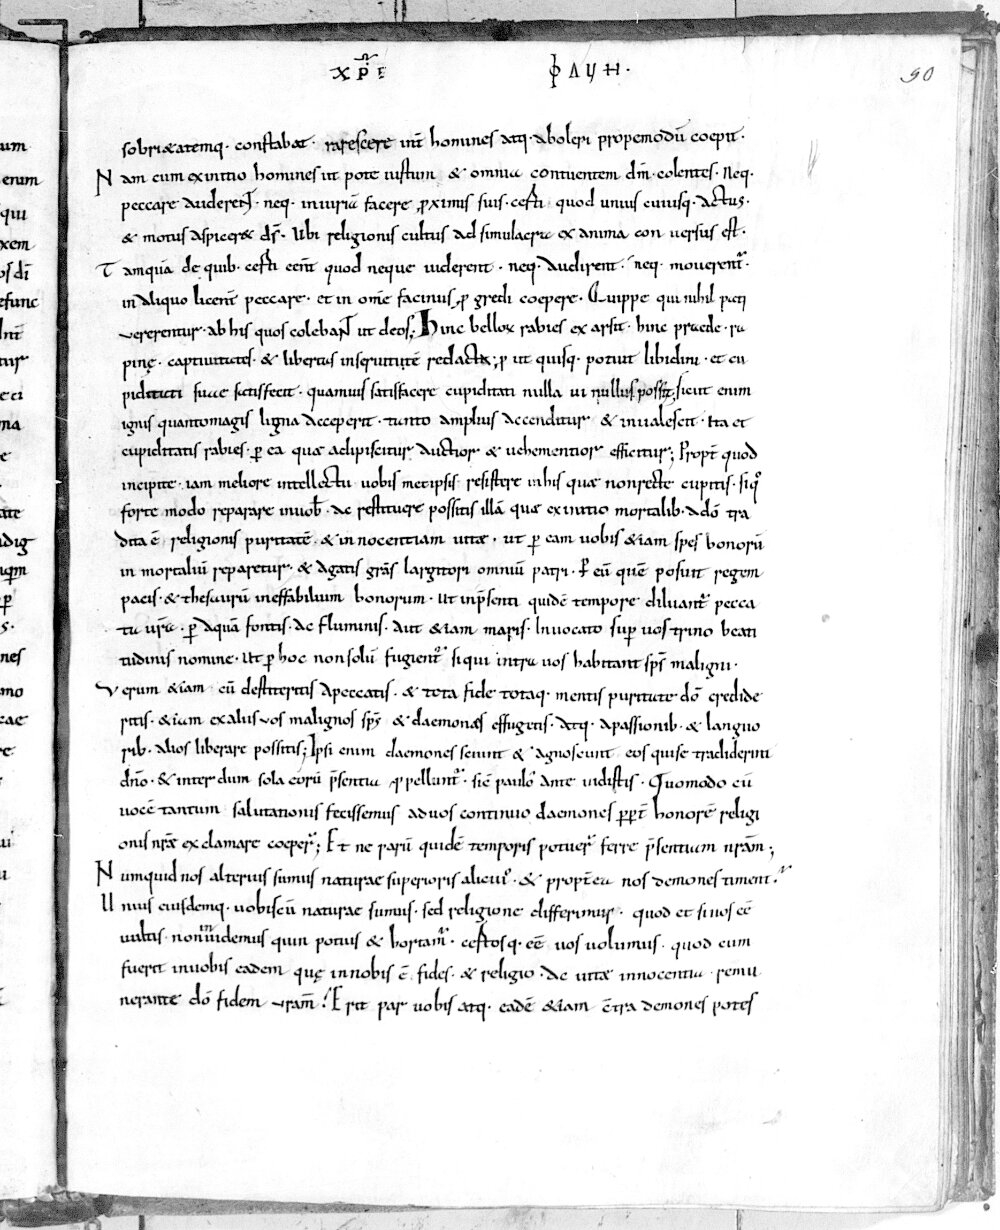 ΧΡ̅Ε ΦΛΥΗ·
90
sobrietatemq· constabat· rarescere int̄ homines atq· aboleri propemodū coepit·
Nam cum ex initio homines ut pote iustum & omnia contuentem dm̄ colentes· Neq·
peccare auderent· neq· iniuriā facere proximis suis· certi quod unius cuiusq· actus·
& motus aspiceret ds̄· Ubi religionis cultus ad simulacra ex anima conversus est·
Tamquā de quib· certi eent̄ quod neque uiderent· neq· audirent· neq· mouerent̄·
in aliquo licent̄ peccare· et in om̄e facinus progredi coepere· Quippe qui nihil pati
vererentur· ab his quos colebant ut deos; hinc bellox rabies exarsit· hinc praede· ra
pinę· captiuitates· & libertas inseruitutē redacta; p ut quisq· potuit libidini· et cu
piditati suae satisfecit· quamuis satisfacere cupiditati nulla ui nullus possit; sicut enim
ignis quantomagis ligna acceperit· tanto amplius accenditur & inualescit· Ita et
cupiditatis rabies· p̄ ea quae adipiscitur auctior & uehementior efficitur; Propt̄ quod
incipite· iam meliore intellectu uobis metipsis resistere inhis quae nonrecte cupitis· siq̊
forte modo reparare inuob̄· ac restituere possitis illā quae exinitio mortalib· adō tra
dita ē religionis puritatē· & innocentiam uitae· ut p̄ eam uobis &iam spes bonorū
in mortaliū reparetur· & agatis grās largitori omniū patri· p̄ eū quē posuit regem
pacis· & thesaurū ineffabilium bonorum· Ut inp̄senti quidē tempore diluant̄ pecca
ta ur̄a· p̄ aquā fontis· ac fluminis· aut &iam maris· Inuocato sup̄ uos trino beati
tudinis nomine· Ut p̄ hoc nonsolū fugient̄ siqui intra uos habitant sps̄ maligni·
Verum &iam cū destiteritis apeccatis· & tota fide totaq· mentis puritate dō credide
ritis· &iam exaliis uos malignos sps̄ & daemonas effugetis· atq· apassionib· & languo
rib· alios liberare possitis; Ipsi enim daemones sciunt & agnoscunt eos quise tradiderint
dn̄o· & interdum sola eorū p̄sentia propellunt̄· sic̄ paulo ante uidistis· Quomodo cū
uocē tantum salutationis fecissemus aduos continuo daemones p̄pt̄ honorē religi
onis nr̄ae exclamare coeper̄; Et ne parū quidē temporis potuer̄ ferre p̄sentiam nr̄am;
Numquid nos alterius sumus naturae superioris alicui᾽· & propt̄ea nos demones timent·
Unius eiusdemq· uobiscū naturae sumus· sed religione differimus· quod et siuos eē
uultis· non inuidemus quin potius & hortam̄· certosq· eē uos uolumus· quod cum
fuerit inuobis eadem quę innobis ē fides· & religio· ac uitae innocentia· remu
nerante dō fidem ur̄am! Erit par uobis atq· eadē &iam c̄tra demones potes